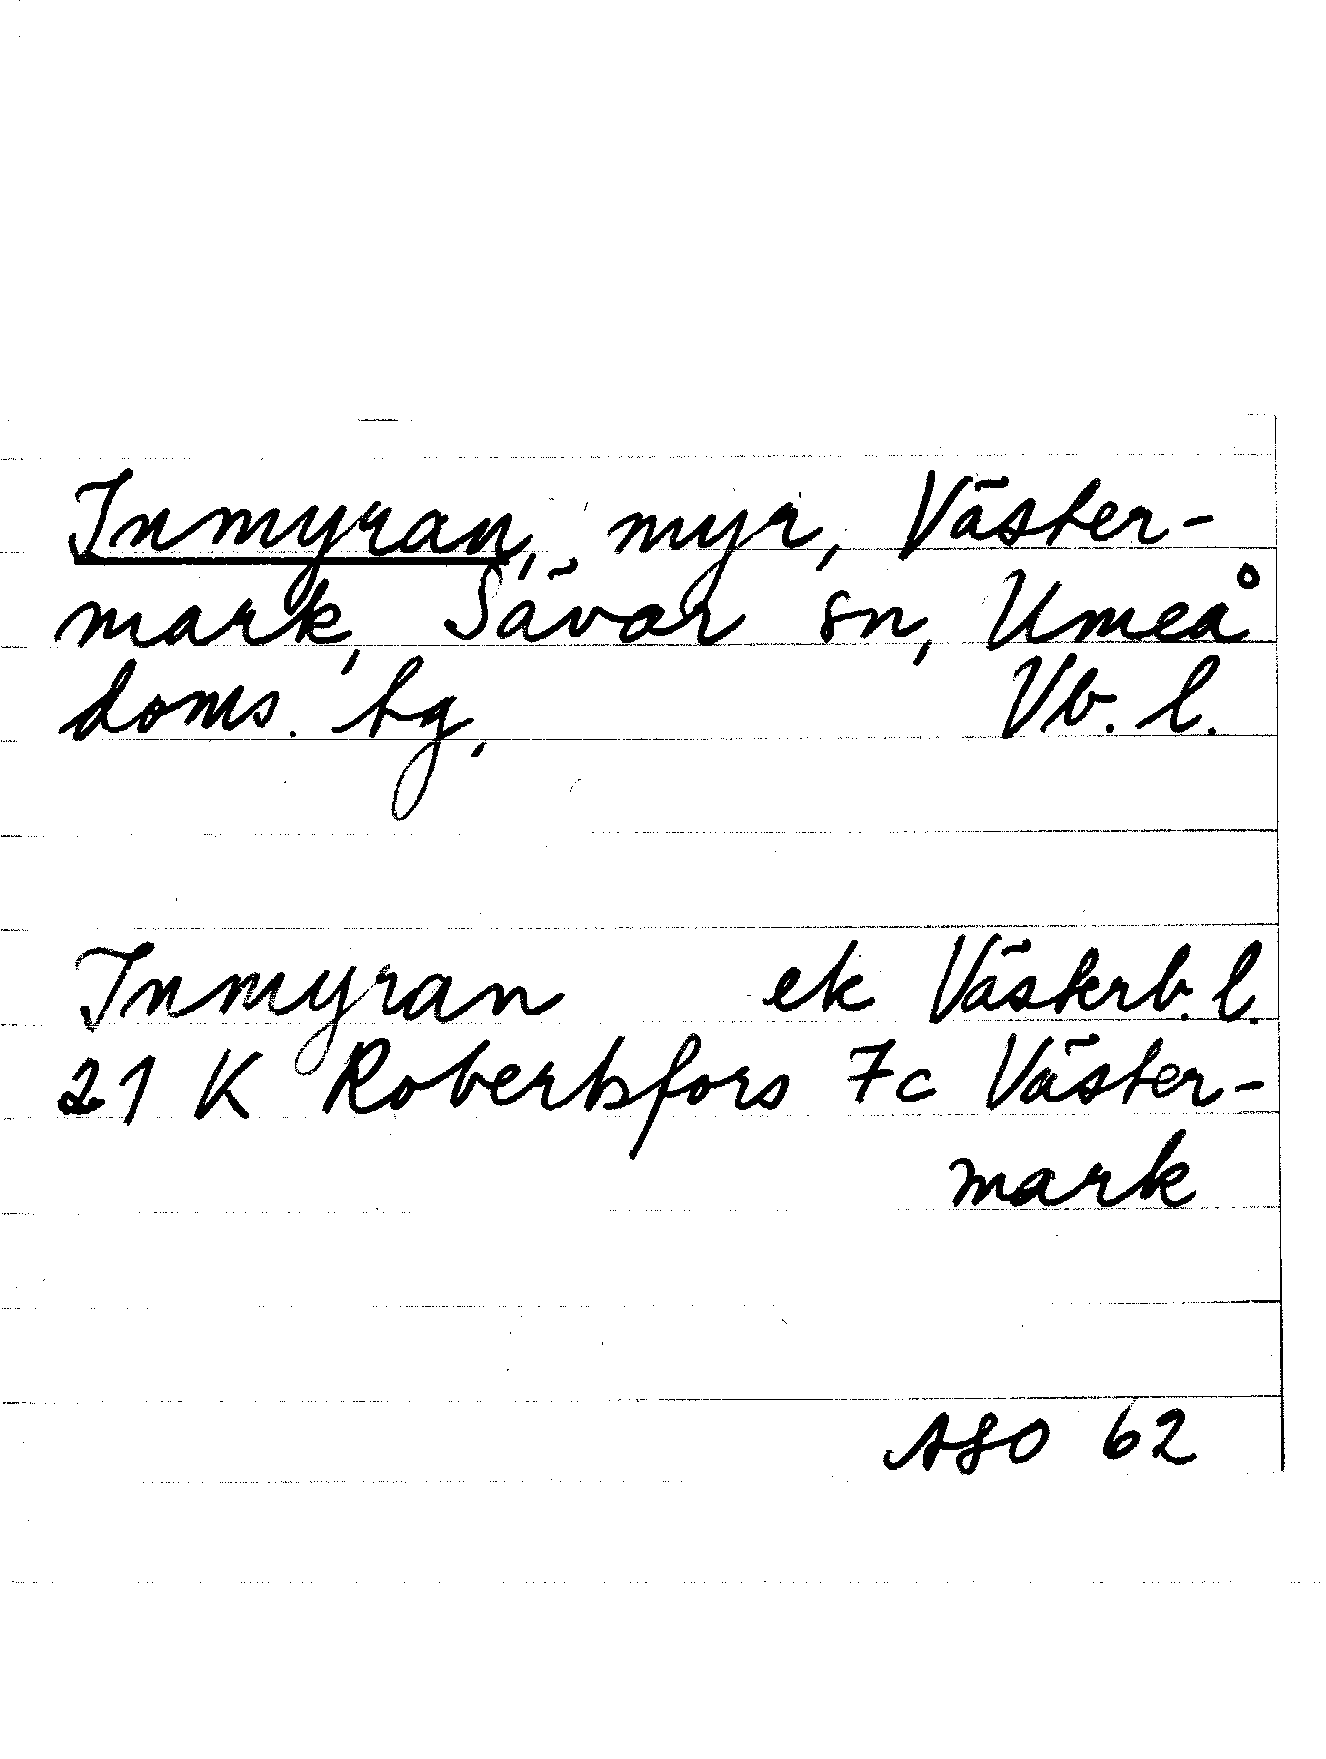 Inmyran, myr, Väster-
mark, Sävar sn, Umeå
doms. tg, Vb. l.
Inmyran ek Västerb. l.
21 K Robertsfors 7c Väster-
mark
ASO 62